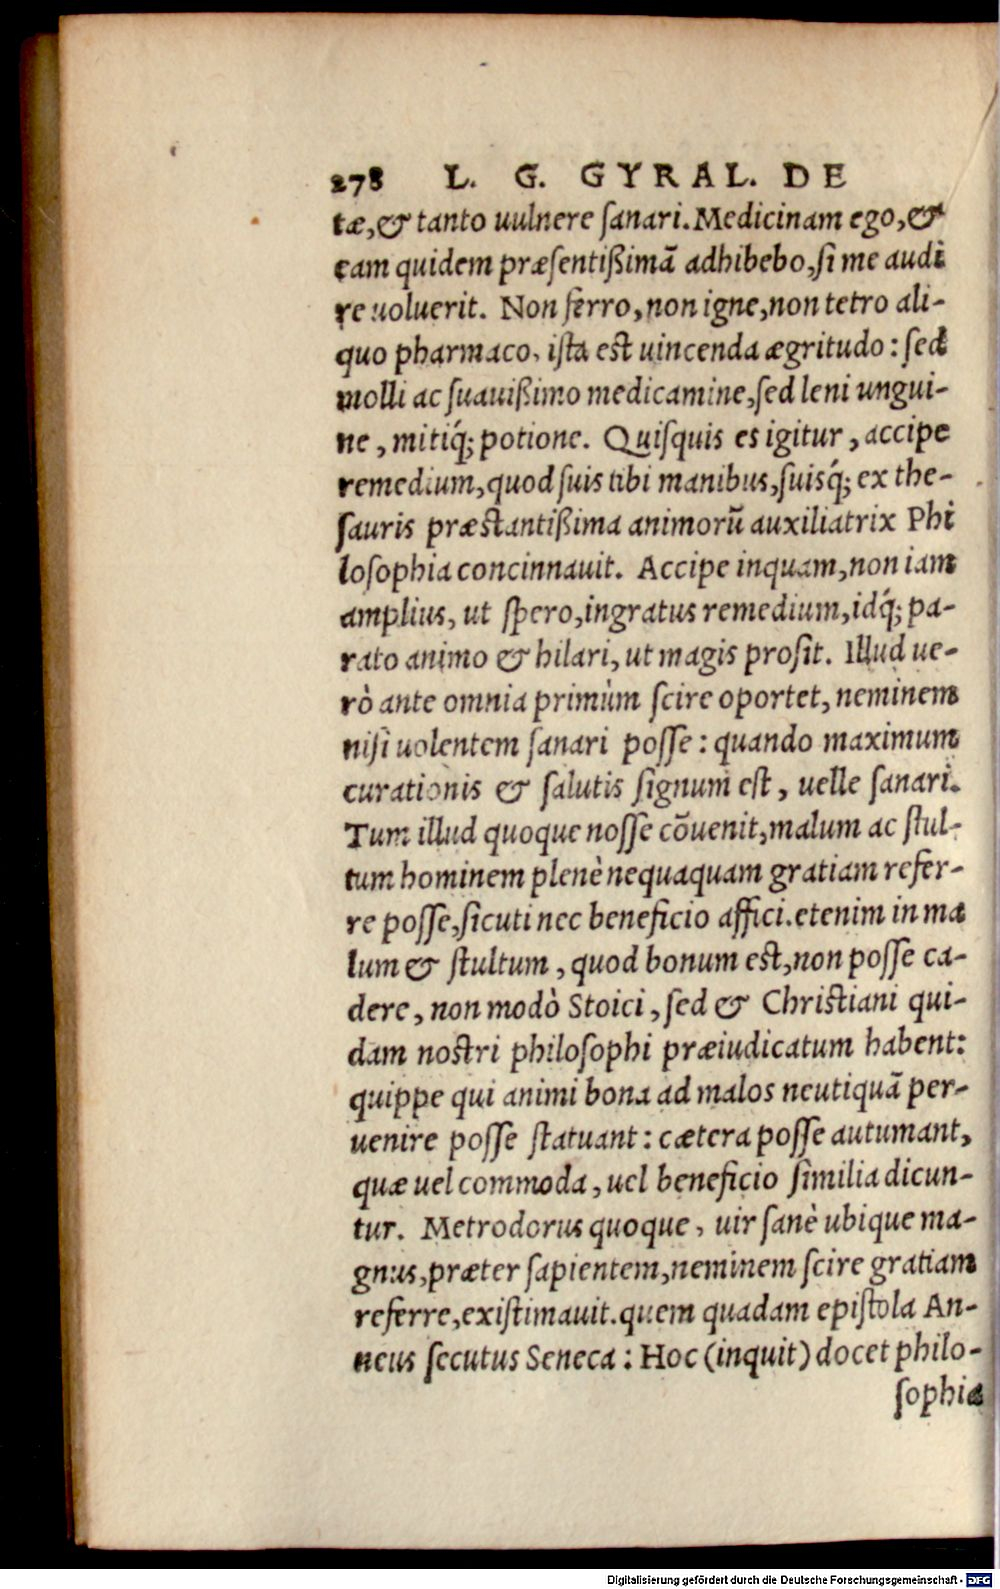 278 L. G. GYRAL. DE
tæ,& tanto uulnere ſanari. Medicinam ego,&
eam quidem præſentißimā adhibebo,ſi me audi
re uoluerit. Non ferro,non igne,non tetro ali-
quo pharmaco, iſta est uincenda ægritudo: ſed
molli ac ſuauißimo medicamine,ſed leni ungui-
ne, mitiq́; potione. Quiſquis es igitur, accipe
remedium,quod ſuis tibi manibus,ſuisq́; ex the-
ſauris præstantißima animorū auxiliatrix Phi
loſophia concinnauit. Accipe inquam,non iam
amplius, ut ſpero,ingratus remedium,idq́; pa-
rato animo & hilari,ut magis proſit. Illud ue-
rò ante omnia primùm ſcire oportet, neminem
niſi uolentem ſanari poſſe: quando maximum
curationis & ſalutis ſignum eſt, uelle ſanari.
Tum illud quoque noſſe cōuenit,malum ac ſtul-
tum hominem plenè nequaquam gratiam refer-
re poſſe,ſicuti nec beneficio affici.etenim in ma
lum & ſtultum, quod bonum est,non poſſe ca-
dere, non modò Stoici, ſed & Christiani qui-
dam nostri philoſophi præiudicatum habent:
quippe qui animi bona ad malos neutiquā per-
uenire poſſe ſtatuant: cætera poſſe autumant,
quæ uel commoda, uel beneficio ſimilia dicun-
tur. Metrodorus quoque, uir ſanè ubique ma-
gnus,præter ſapientem,neminem ſcire gratiam
referre,exiſtimauit.quem quadam epiſtola An-
neus ſecutus Seneca: Hoc (inquit) docet philo-
ſophia
Digitalisierung gefördert durch die Deutsche Forschungsgemeinschaft - DFG